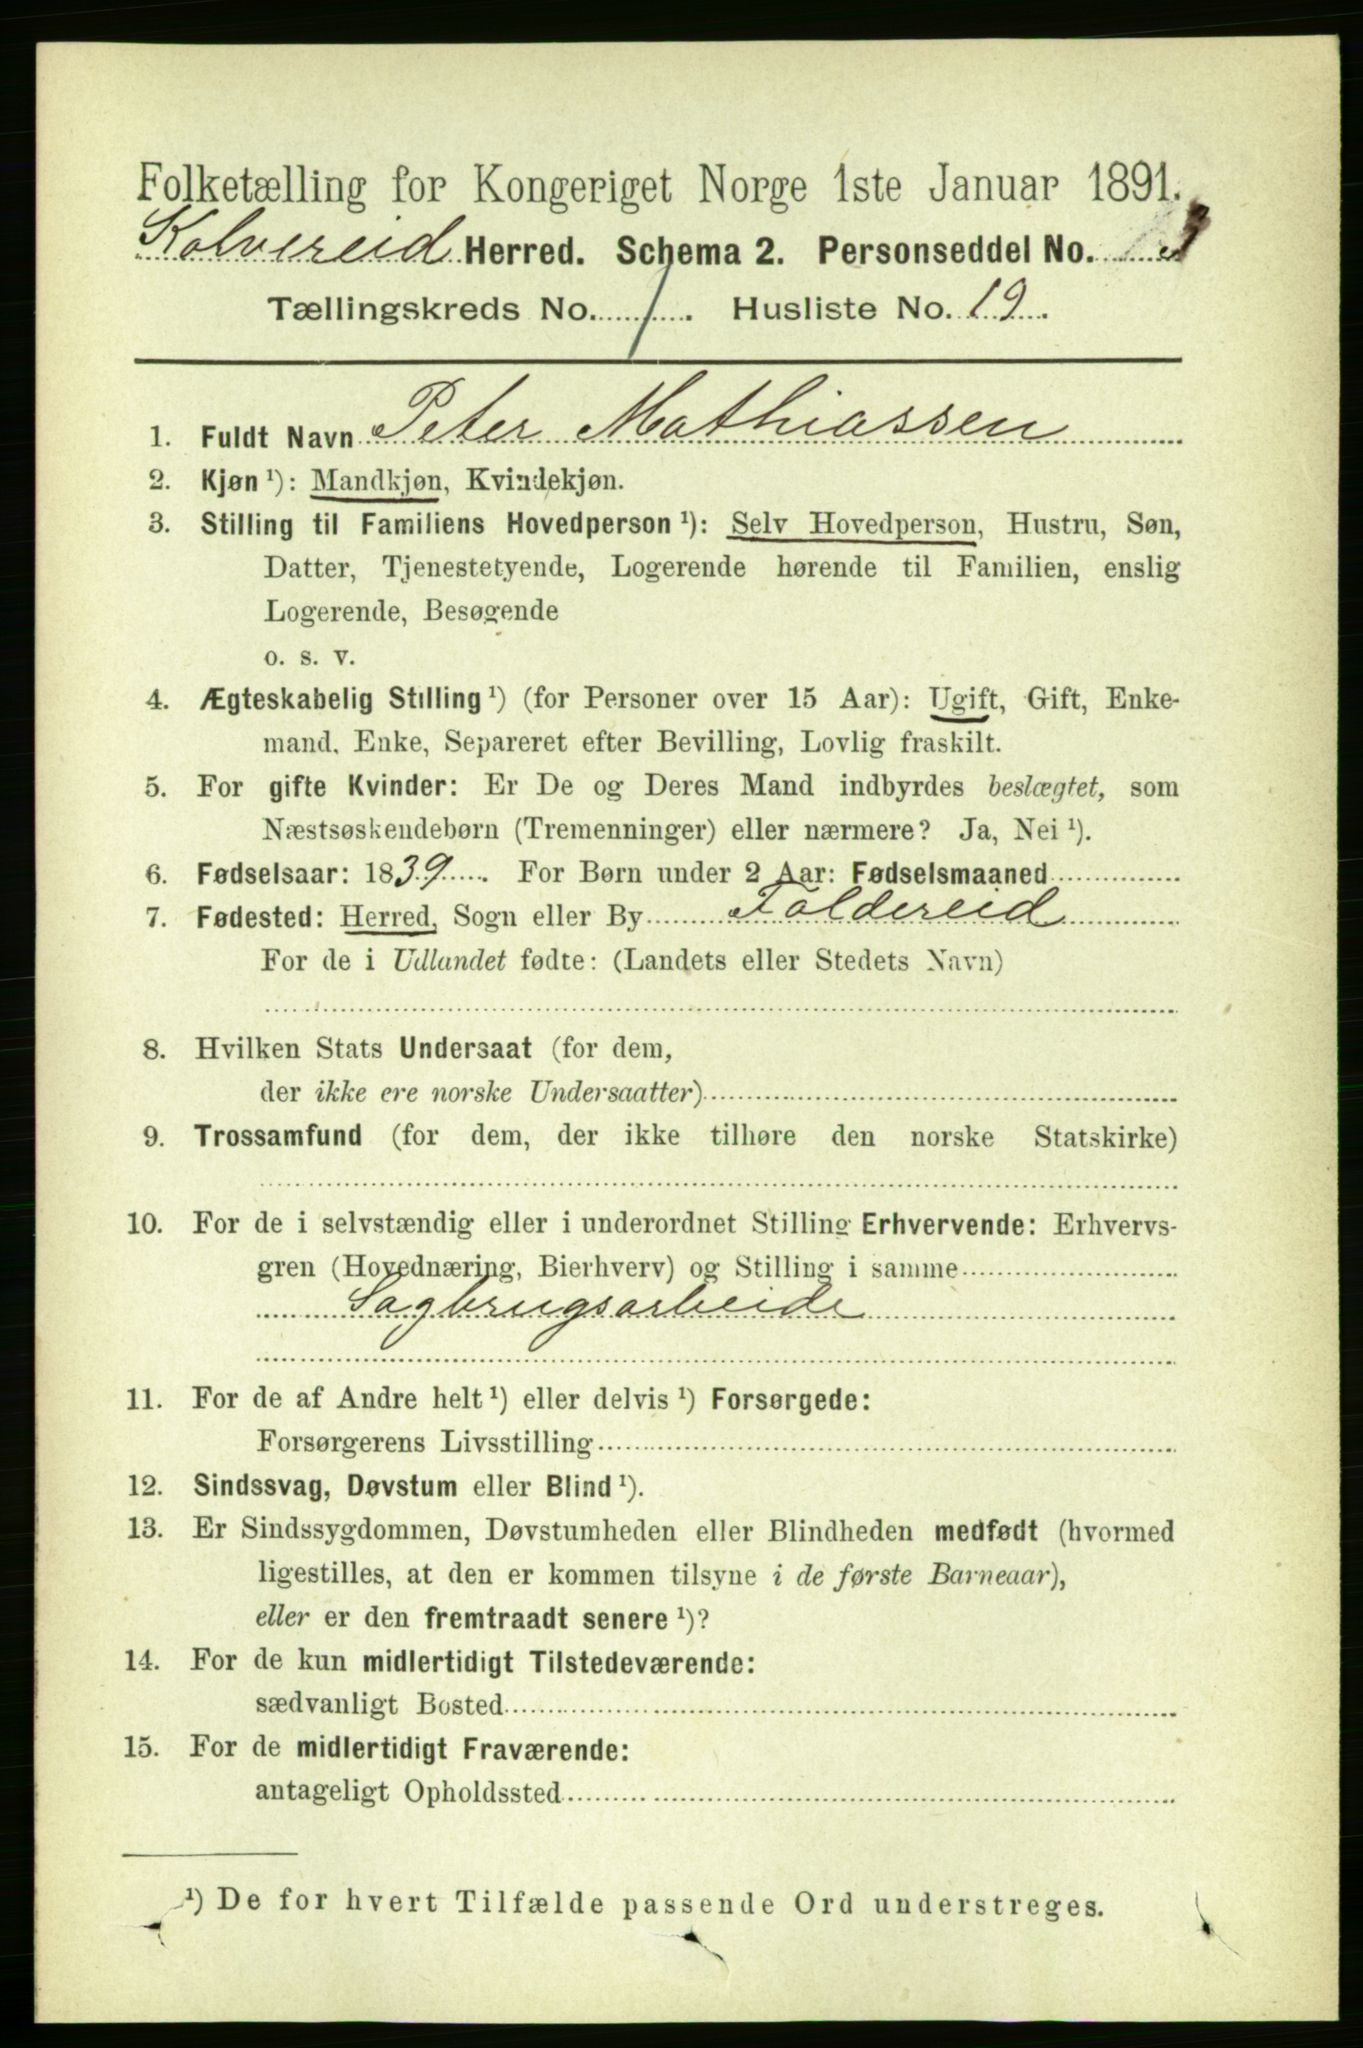 Folketælling for Kongeriget Norge 1ste Januar 1891.
Kolvereid Herred. Schema 2. Personseddel No.
Tællingskreds No. 1. Husliste No. 19.
1. Fuldt Navn Peter Mathiassen
2. Kjøn ¹): Mandkjøn, Kvindekjøn.
3. Stilling til Familiens Hovedperson ¹): Selv Hovedperson, Hustru, Søn,
Datter, Tjenestetyende, Logerende hørende til Familien, enslig
Logerende, Besøgende
o. s. v.
4. Ægteskabelig Stilling ¹) (for Personer over 15 Aar): Ugift, Gift, Enke-
mand, Enke, Separeret efter Bevilling, Lovlig fraskilt.
5. For gifte Kvinder: Er De og Deres Mand indbyrdes beslægtet, som
Næstsøskendebørn (Tremenninger) eller nærmere? Ja, Nei ¹).
6. Fødselsaar: 1839. For Børn under 2 Aar: Fødselsmaaned
7. Fødested: Herred, Sogn eller By Foldereid
For de i Udlandet fødte: (Landets eller Stedets Navn)
8. Hvilken Stats Undersaat (for dem,
der ikke ere norske Undersaatter)
9. Trossamfund (for dem, der ikke tilhøre den norske Statskirke)
10. For de i selvstændig eller i underordnet Stilling Erhvervende: Erhvervs-
gren (Hovednæring, Bierhverv) og Stilling i samme
Sagbrugsarbeide
11. For de af Andre helt ¹) eller delvis ¹) Forsørgede:
Forsørgerens Livsstilling
12. Sindssvag, Døvstum eller Blind ¹).
13. Er Sindssygdommen, Døvstumheden eller Blindheden medfødt (hvormed
ligestilles, at den er kommen tilsyne i de første Barneaar),
eller er den fremtraadt senere ¹)?
14. For de kun midlertidigt Tilstedeværende:
sædvanligt Bosted
15. For de midlertidigt Fraværende:
antageligt Opholdssted
¹) De for hvert Tilfælde passende Ord understreges.